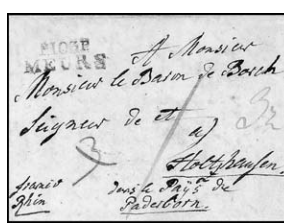 P103P
MEURS
A Monsieur
Monsieur le Baron de Bosch
Seigneur de et
a)
Holtzhausen.
franco
Rhin
dans le Pays de
Paderborn.